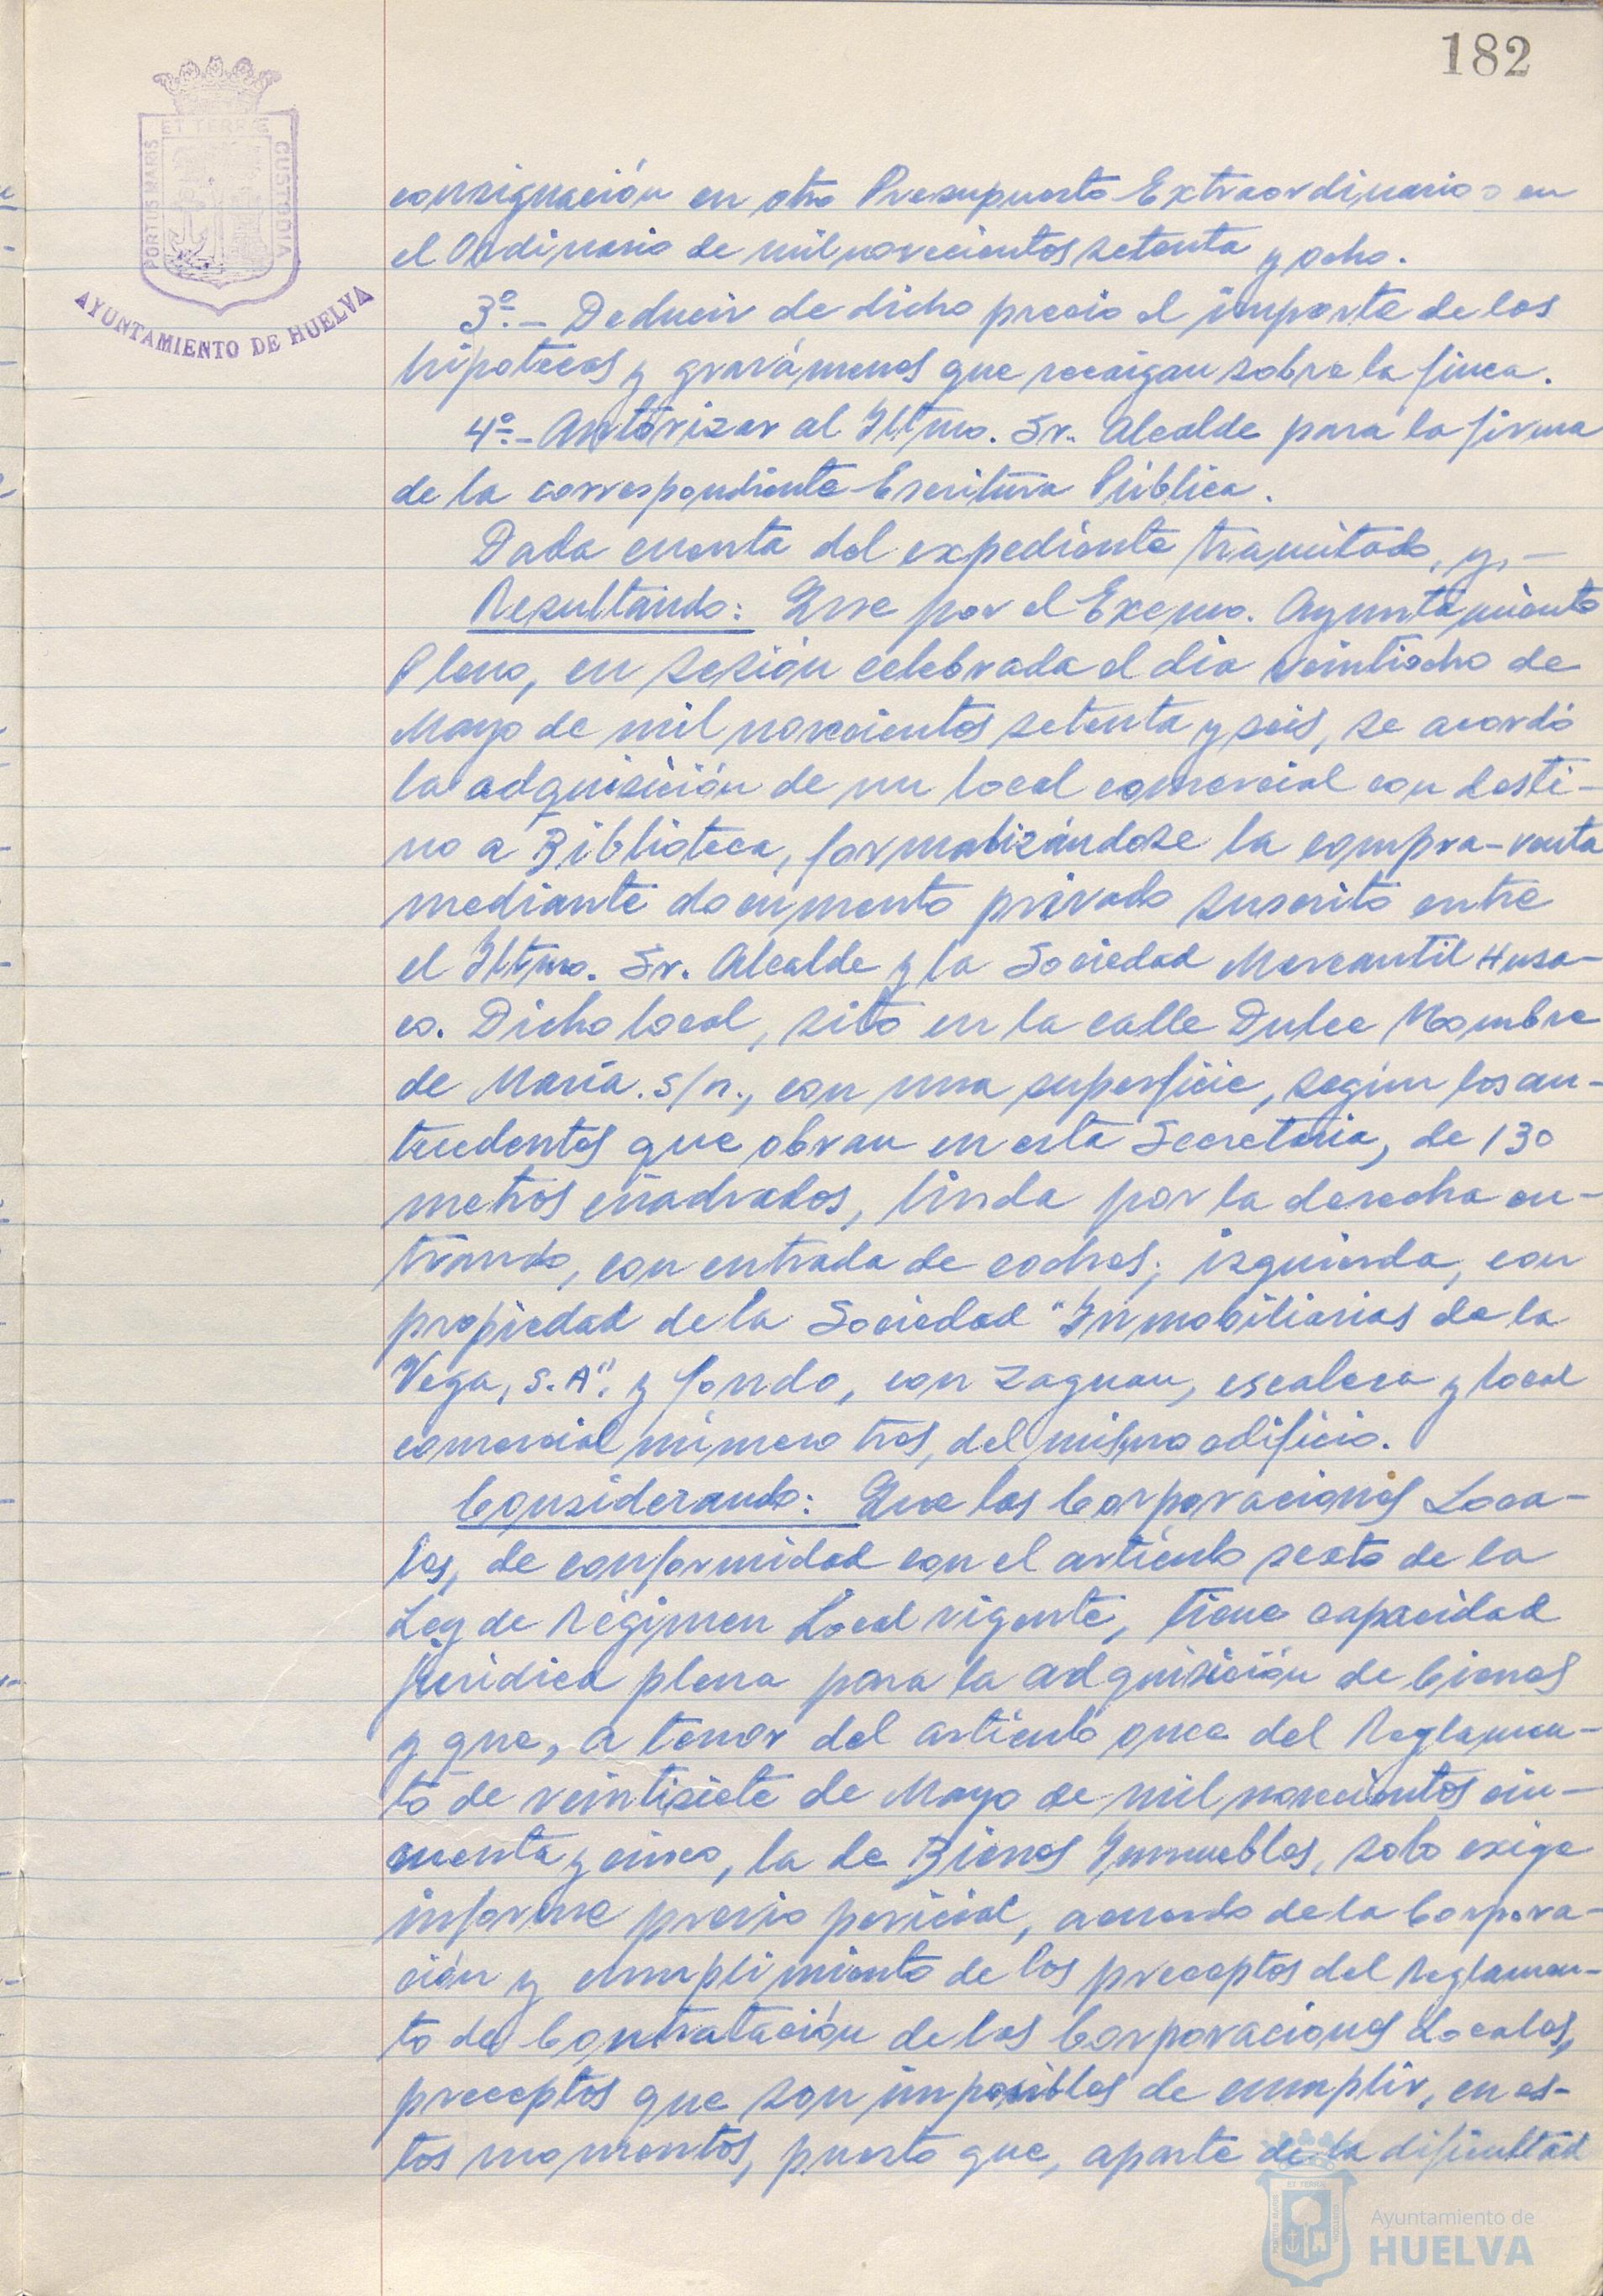 182
ET TERRÆ
PORTUS MARIS
CUSTODIA
AYUNTAMIENTO DE HUELVA
consignación en otro Presupuesto Extraordinario o en
el Ordinario de mil novecientos setenta y ocho.
3º.- Deducir de dicho precio el importe de los
hipotecas y gravámenes que recaigan sobre la finca.
4º.- Autorizar al Iltmo. Sr. Alcalde para la firma
de la correspondiente Escritura Pública.
Dada cuenta del expediente tramitado, y,-
Resultando: Que por el Excmo. Ayuntamiento
Pleno, en sesión celebrada el día veintiocho de
Mayo de mil novecientos setenta y seis, se acordó
la adquisición de un local comercial con desti-
no a Biblioteca, formalizándose la compra-venta
mediante documento privado suscrito entre
el Iltmo. Sr. Alcalde y la Sociedad Mercantil Husa-
co. Dicho local, sito en la calle Dulce Nombre
de María. s/n., con una superficie, según los an-
tecedentes que obran en esta Secretaria, de 130
metros cuadrados, linda por la derecha en-
trando, con entrada de coches; izquierda, con
propiedad de la Sociedad "Inmobiliarias de la
Vega, S.A". y fondo, con zaguan, escalera y local
comercial número tres, del mismo edificio.
Considerando: Que las Corporaciones Loca-
les, de conformidad con el artículo sexto de la
Ley de Régimen Local vigente, tiene capacidad
jurídica plena para la adquisición de bienes
y que, a tenor del artículo once del Reglamen-
to de veintisiete de Mayo de mil novecientos cin-
cuenta y cinco, la de Bienes Inmuebles, solo exige
informe previo pericial, acuerdo de la Corpora-
ción y cumplimiento de los preceptos del Reglamen-
to de Contratación de las Corporaciones Locales,
preceptos que son imposibles de cumplir, en es-
tos momentos, puesto que, aparte de la dificultad
Ayuntamiento de
HUELVA